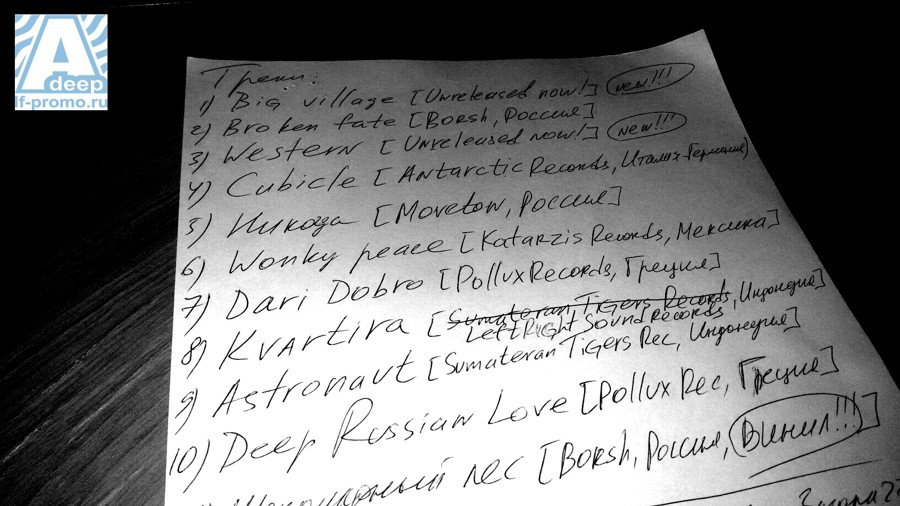 A deep
lf-promo.ru
Треки:
1) Big village [Unreleased now!] new!!!
2) Broken fate [Borsh, Россия]
3) Western [Unreleased now!] new!!!
4) Cubicle [Antarctic Records, Италия-Германия)
5) Никогда [Moveton, Россия]
6) Wonky peace [Katarzis Records, Мексика]
7) Dari Dobro [Pollux Records, Греция]
8) Kvartira [Sumateran Tigers Records, Индонезия]
LeftRight Sound Records
9) Astronaut [Sumateran Tigers Rec, Индонезия]
10) Deep Russian Love [Pollux Rec, Греция]
лес [Borsh, Россия, Винил!!!]